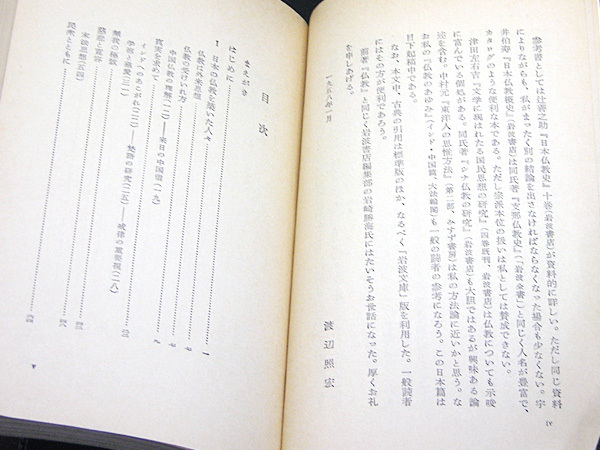 参考書としては辻善之助『日本仏教史』十巻(岩波書店)が資料的に詳しい。ただし同じ資料
によりながらも、私がまったく別の結論を出さなければならなくなった場合も少なくない。宇
井伯寿『日本仏教概史』(岩波書店)は同氏著『支那仏教史』(岩波全書)と同じく人名が豊富で、
カタログのような便利な本である。ただし宗派本位の扱いは私としては賛成できない。
津田左右吉『文学に現はれたる国民思想の研究』(四巻既刊、岩波書店)は仏教についても示唆
に富んでいる個処がある。同氏著『シナ仏教の研究』(岩波書店)も大胆ではあるが興味ある論
述を含む。中村元『東洋人の思惟方法』(第二部、みすず書房)は私の方法論に近いかと思う。な
お私の『仏教のあゆみ』(インド・中国篇、大法輪閣)も一般の読者の参考になろう。この日本篇は
目下起稿中である。
なお、本文中、古典の引用は標準版のほか、なるべく『岩波文庫』版を利用した。一般読者
にはその方が便利であろう。
前著『仏教』と同じく岩波書店編集部の岩崎勝海氏にはたいそうお世話になった。厚くお礼
を申しあげる。
一九五八年一月
渡辺照宏
iv
目次
まえがき
はじめに……一
I 日本の仏教を築いた人々……七
仏教は外来思想……七
仏教の受けいれ方……
中国仏教の理解(一二)――来日の中国僧(一九)
真実を求めて……
インドへのあこがれ(二二)――梵語の研究(二五)――戒律の重要視(二八)
学問と感覚(三一)
無我の極致……
慈悲と寛容……
末法思想(五四)
民衆とともに……
v